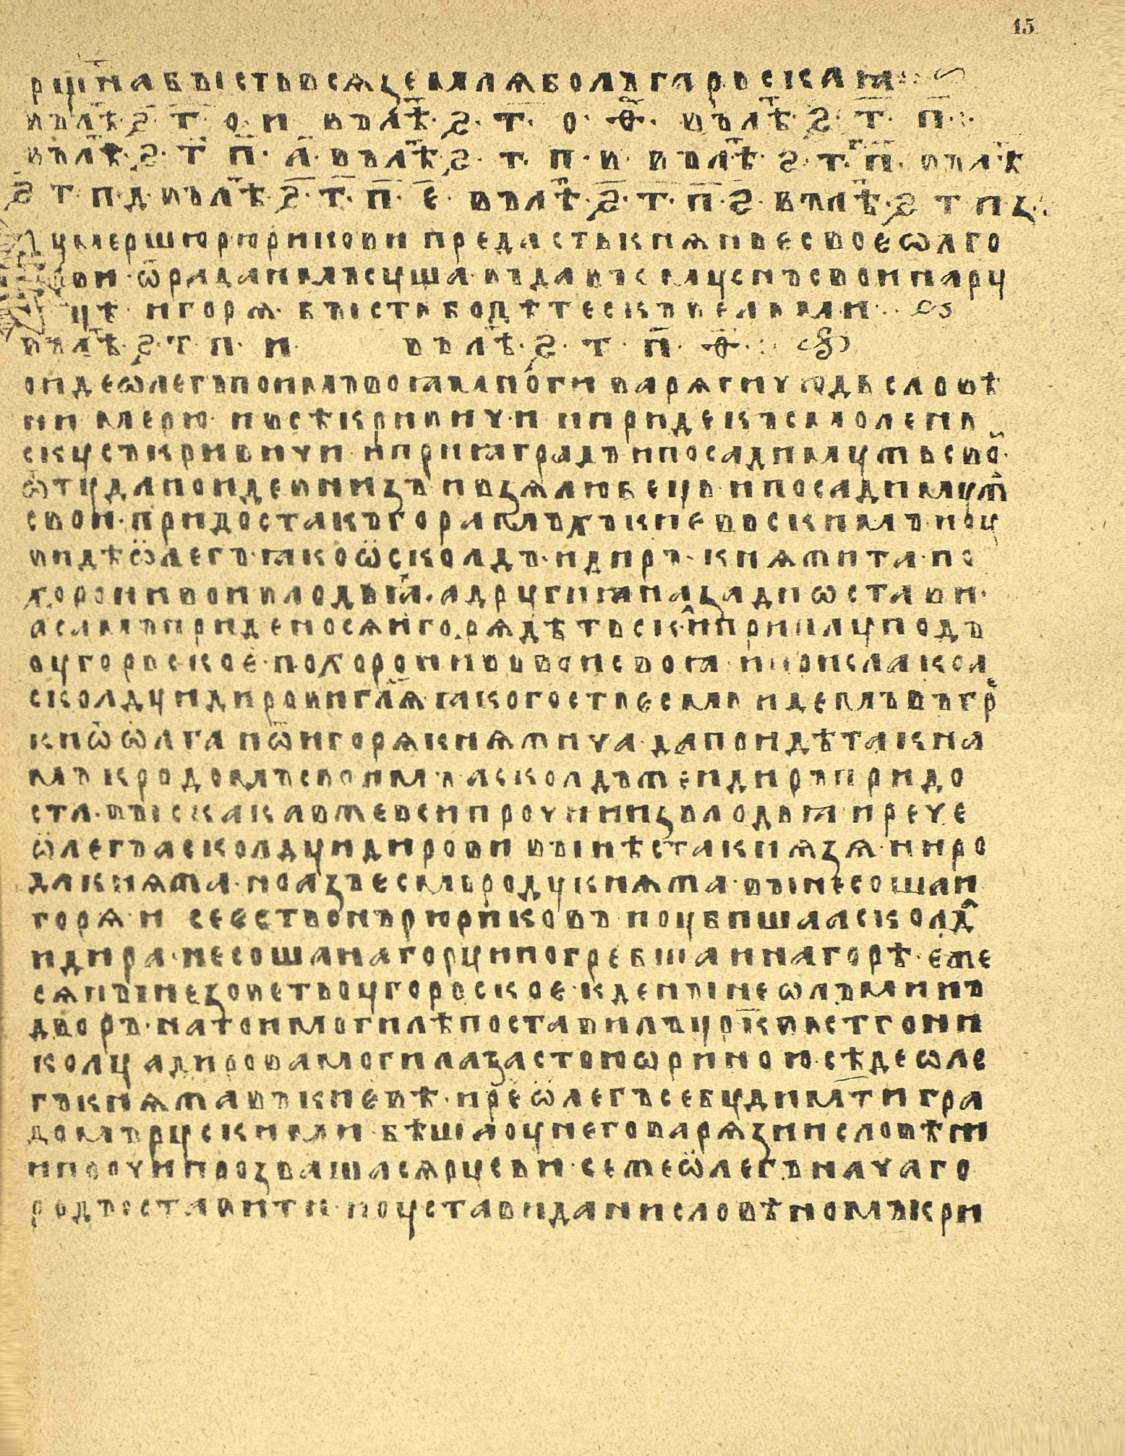 15
рщн҃а бъістьвсѧземлѧболъгарьскаꙗ
въ лѣт҃ ѕ҃ т҃ о и въ лѣт҃ ѕ т о ѳ҃ въ лѣт҃ ѕ т п
въ лѣт҃ ѕ т п а въ лѣт҃ ѕ т п в въ лѣт҃ ѕ т г п въ лѣ
ѕ т п д въ лѣт҃ ѕ т п е въ лѣт҃ ѕ т п ѕ въ лѣт҃ ѕ т п з
умершюрюрикови предастькнѧженьесвоеѡлго
ви ѿрадаимъсуща въдавъємуснъсвоинару
цѣ игорѧ бъістьбодѣтескъвельми
въ лѣт҃ ѕ т п и въ лѣт҃ ѕ т п ѳ
оидеѡлегъпоимъвоꙗмногиварѧгичюдьсловѣ
ни мерю ивсѣкривичи иприде къ смоленъ
скусъкривичи иприꙗградъипосадимужьсво
ѿтудапоидевнизъ ивзѧлюбець ипосадимуж
свои придостакъгорамъхъкиевьскимъ иоу
видѣѡлегъꙗкоѡсколдъ идиръ кнѧжита по
хоронивоивлодьꙗ адругиꙗназадиѡстави
асамъприденосѧигорѧдѣтьск и приплуподъ
оугорьскоє похоронивъвоисвоꙗ иприслакоа
сколдуидировигл҃ѧ ꙗкогостьєсмь идемъвъгр
киѿѡлга иѿигорѧкнѧжича дапоидѣтакна
мъкродомъсвоимъ асколдъжеидиръпридо
ста въіскакавжевсипрочиизълодьꙗ ирече
ѡлегъасколдуидирови въінѣстакнѧзѧ ниро
дакнѧжа ноазъесмьродукнѧжа въінесошаи
горѧ и сеестьснърюриковъ иоубишаасколд
идира несошанагоруипогребшаинагорѣ еже
сѧнъінезоветьоугорьскоє кденъінеѡлъминъ
дворъ натоимогилѣпоставилъцркъвьстгони
колу адироовамогилазастоюѡриною сѣдеѡле
гъкнѧжавъкиевѣ ирч҃еѡлегъсебудимт҃игра
домъ русkими бѣшаоунеговарѧзиисловѣни
ипрочипрозвашасѧрусью сежеѡлегъначаго
родъіставити иоуставиданисловѣномъкри